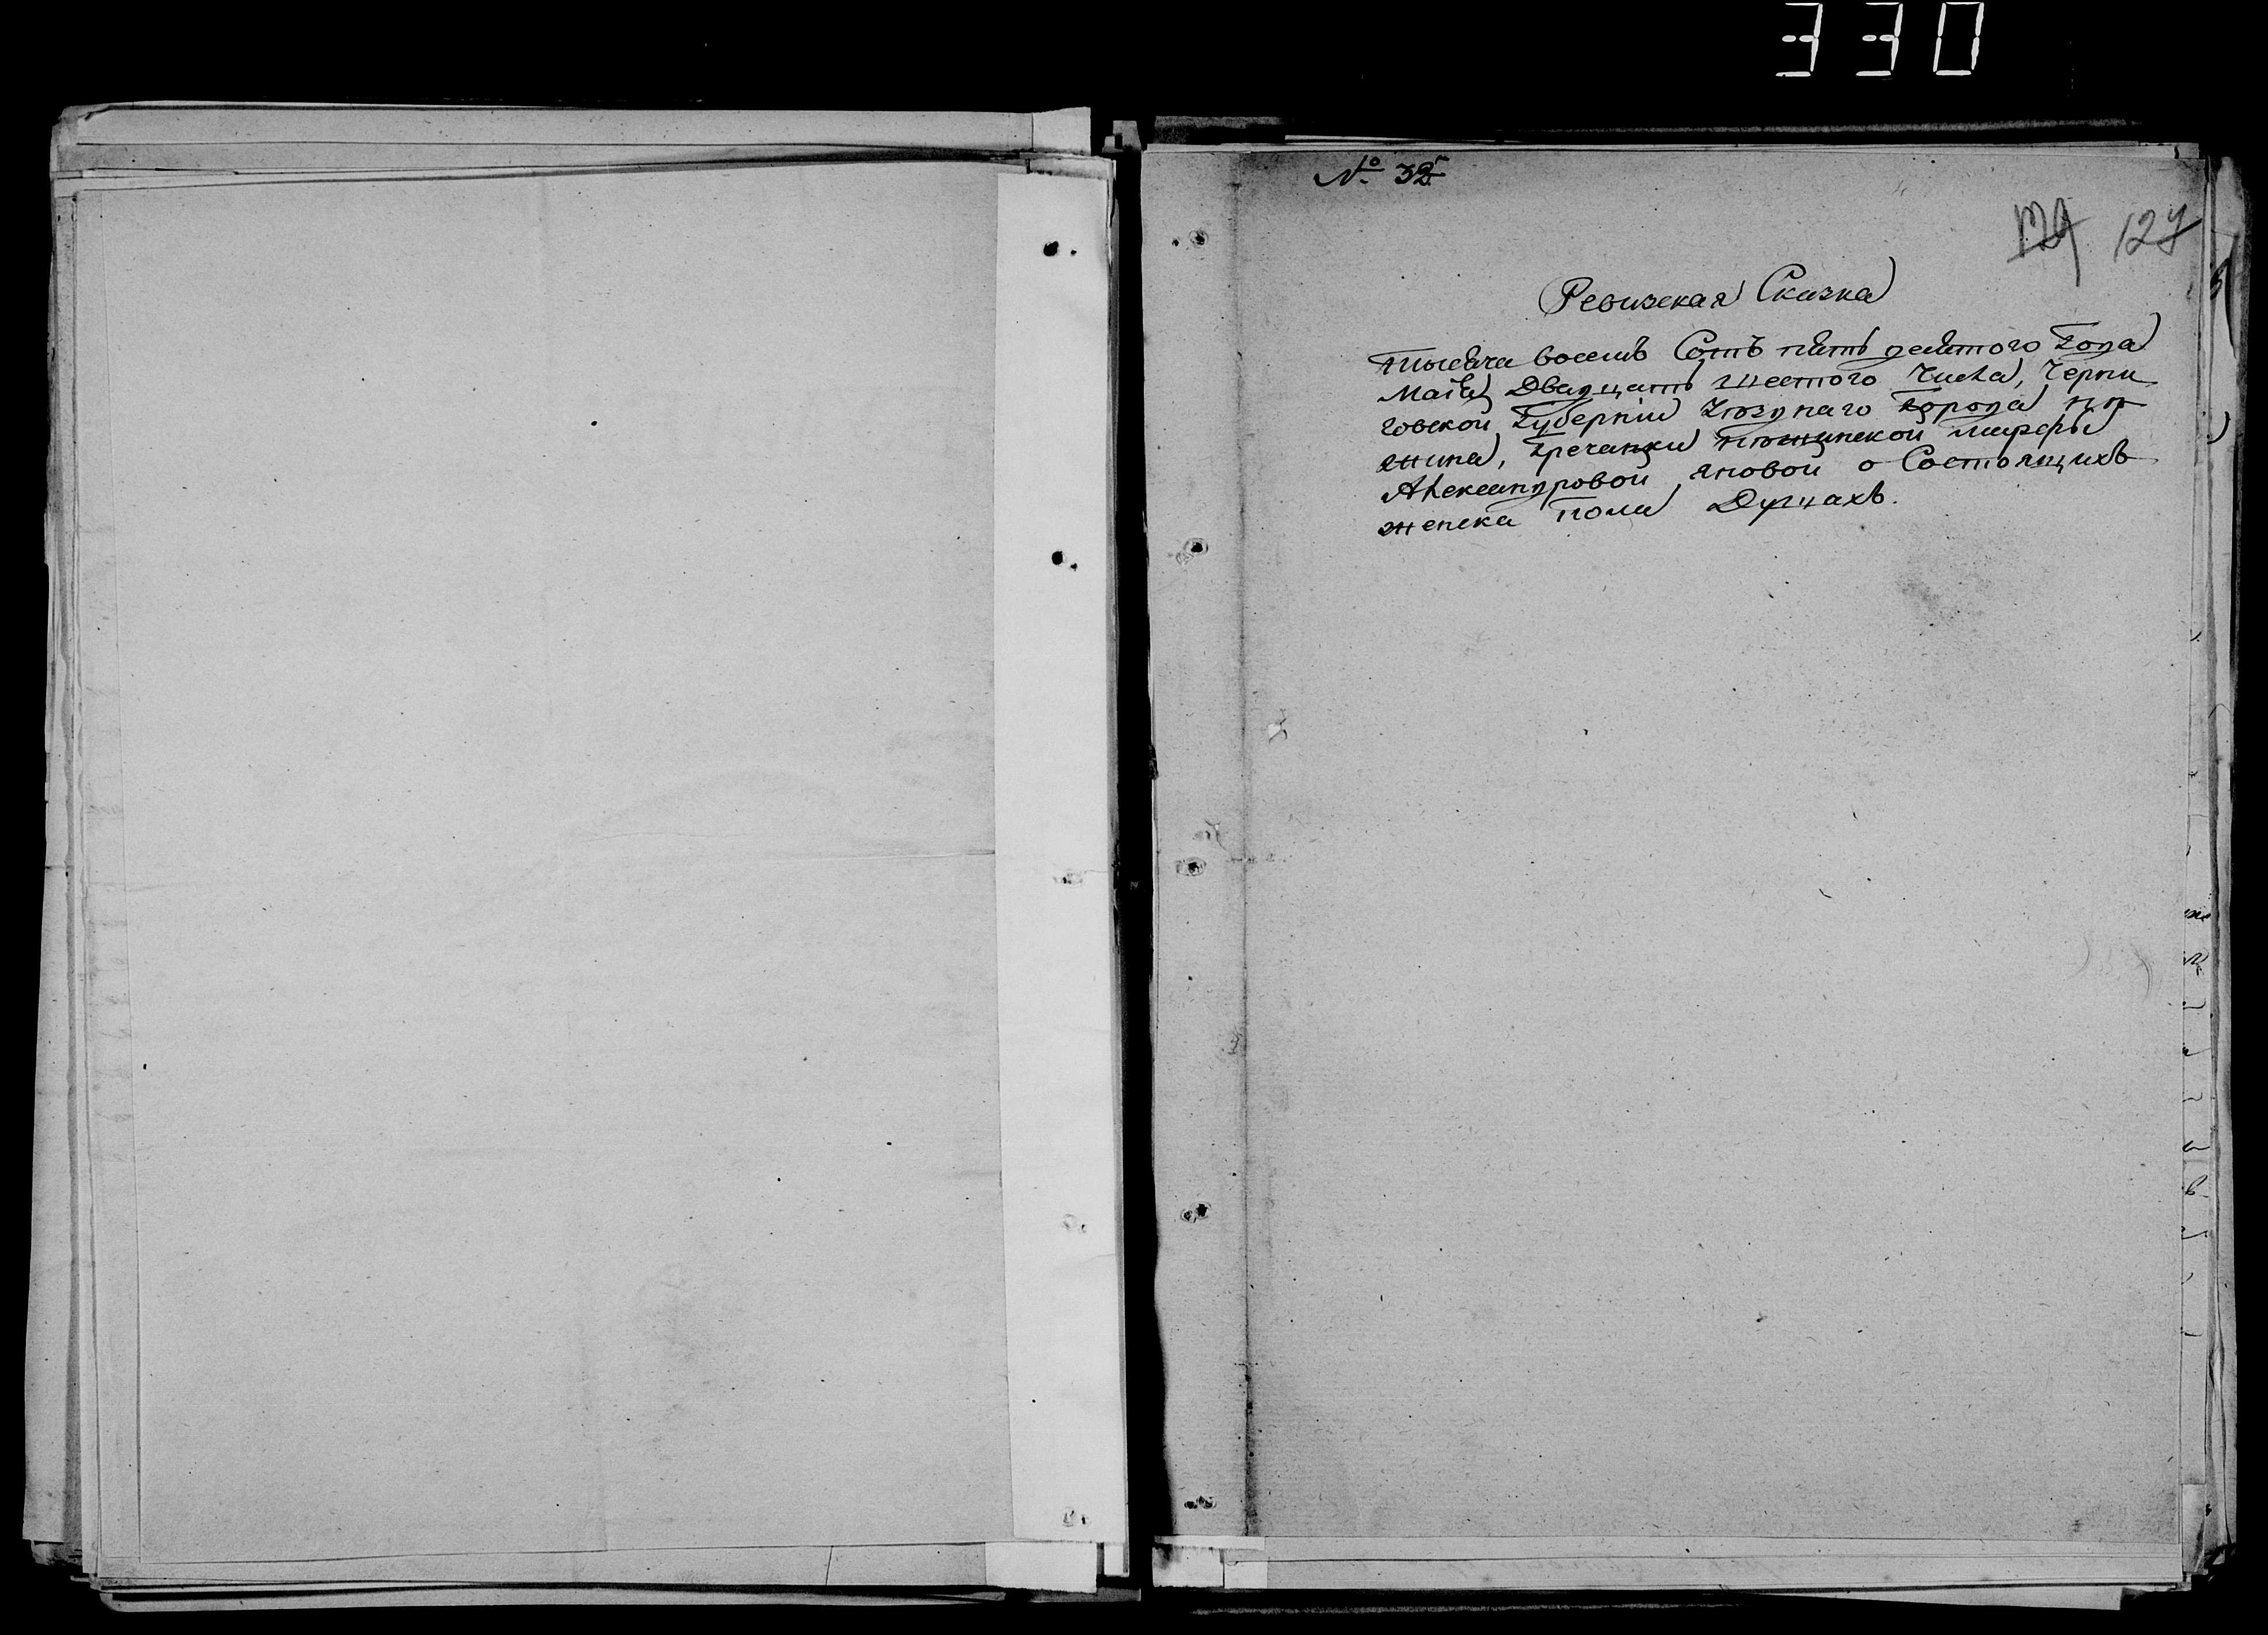 330
№ 32
127
Ревизская Сказка
Тысяча восемъ Сотъ пять десятого Года
Маія Двадцать шестого Числа, Черни
говской Губерніи уѣзднаго города нѣ
жина, гречанки нѣжинской марфы
Александровой яновой о Состоящихъ
женска пола Душахъ.